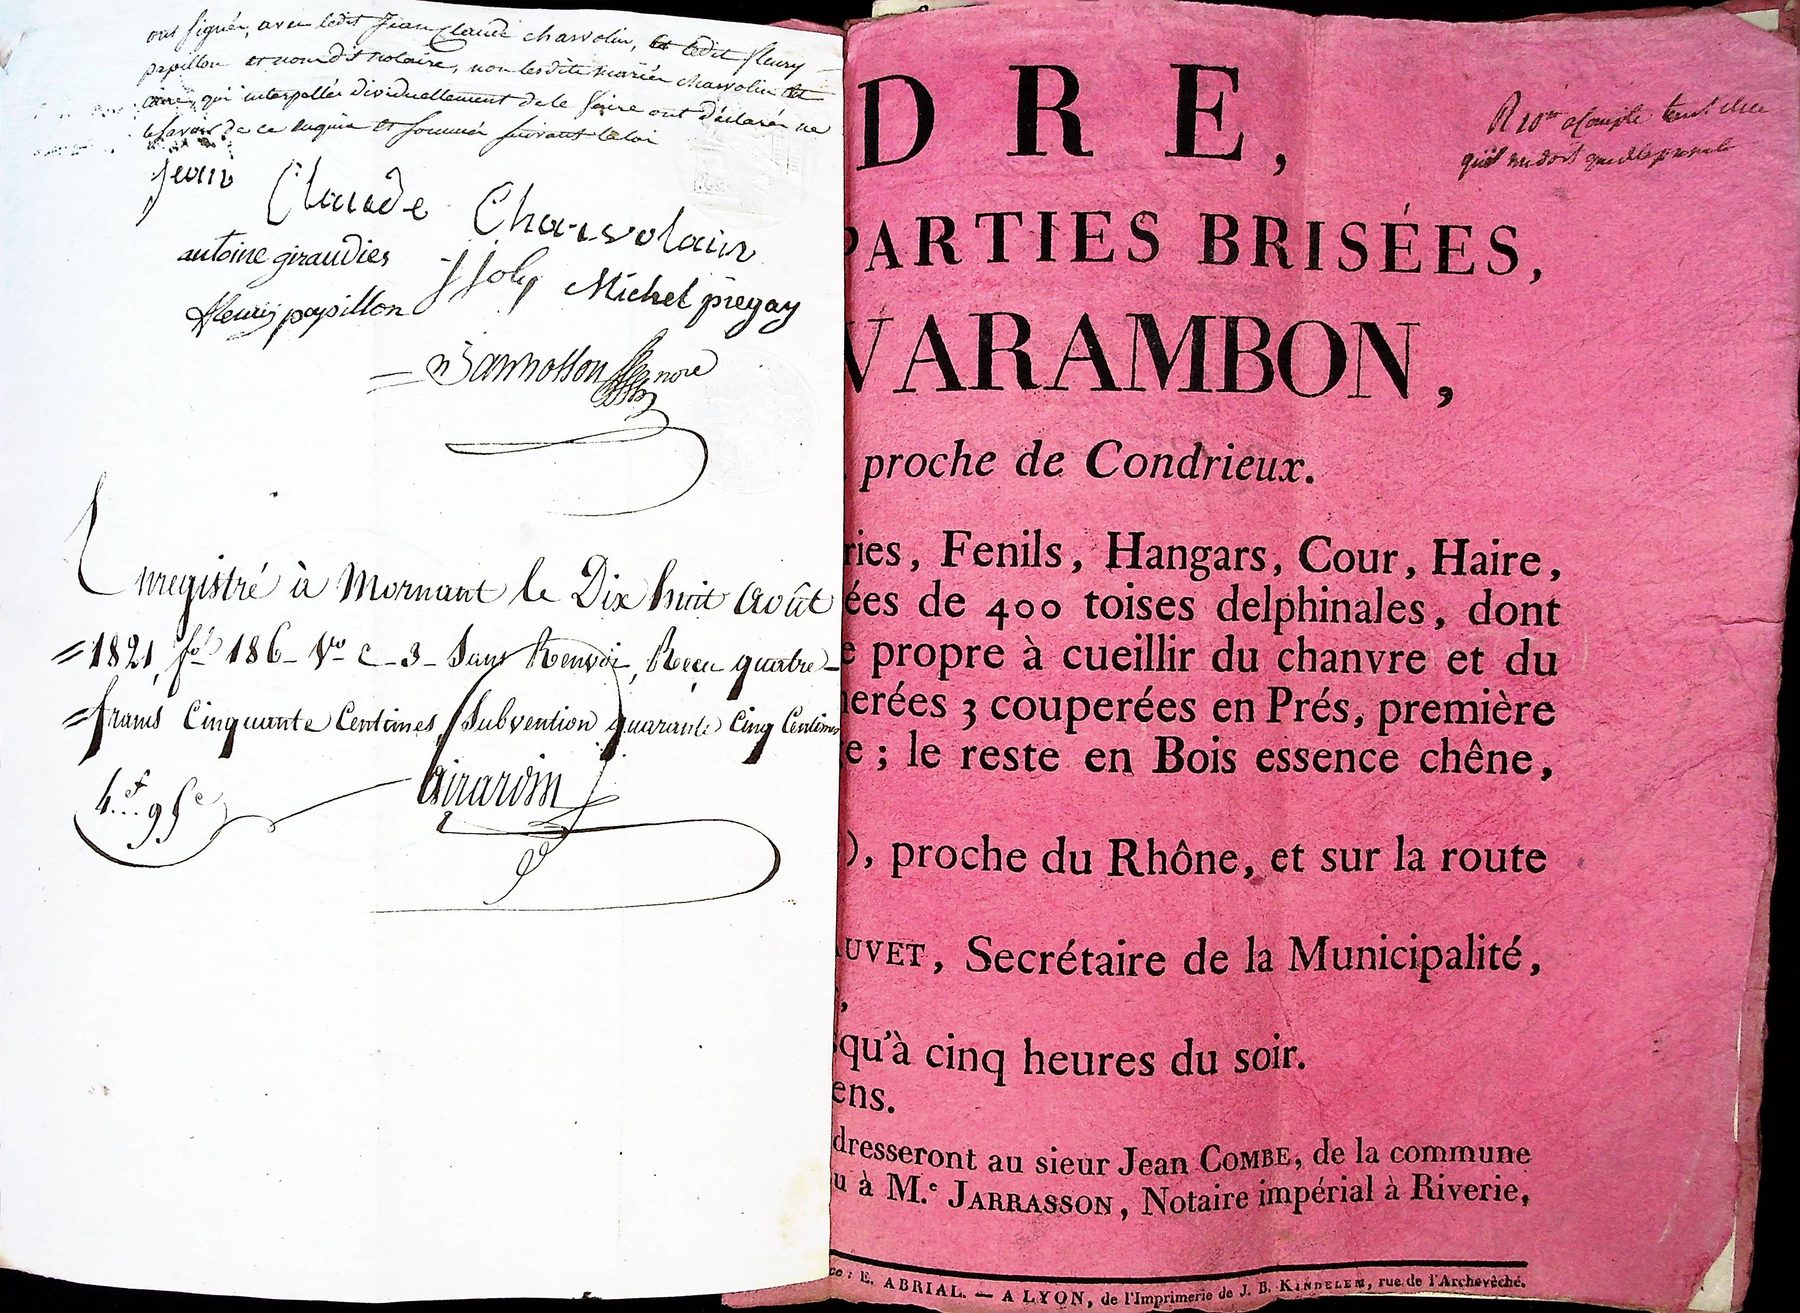 ont signés, avec ledit Jean Claude charvolin, et ledit fleury
papillon et nous dit notaire, non lesdits mariés charvolin et
qui interpellés dividuellement de le faire ont déclarés ne
le savoir de ce enquis et sommés suivant la loi
Jean Claude Charvolain
antoine giraudier J Joly Michel piegay
fleury papillon
nore
Enregistré à Mornant le Dix huit Août
=1821, fo. 186 Vo c. 3 Sans Renvoi, Reçu quatre
=francs Cinquante Centimes, Subvention quarante cinq Centimes
4.f 95c Girardin
DRE,
R 10
PARTIES BRISÉES,
VARAMBON,
proche de Condrieux.
ries, Fenils, Hangars, Cour, Haire,
ées de 400 toises delphinales, dont
e propre à cueillir du chanvre et du
erées 3 couperées en Prés, première
e; le reste en Bois essence chêne,
), proche du Rhône, et sur la route
AUVET, Secrétaire de la Municipalité,
squ'à cinq heures du soir.
ens.
dresseront au sieur Jean COMBE, de la commune
u à M.e JARRASSON, Notaire impérial à Riverie,
ce: E. ABRIAL. — A LYON, de l'Imprimerie de J. B. KINDELEM, rue de l'Archevêché.